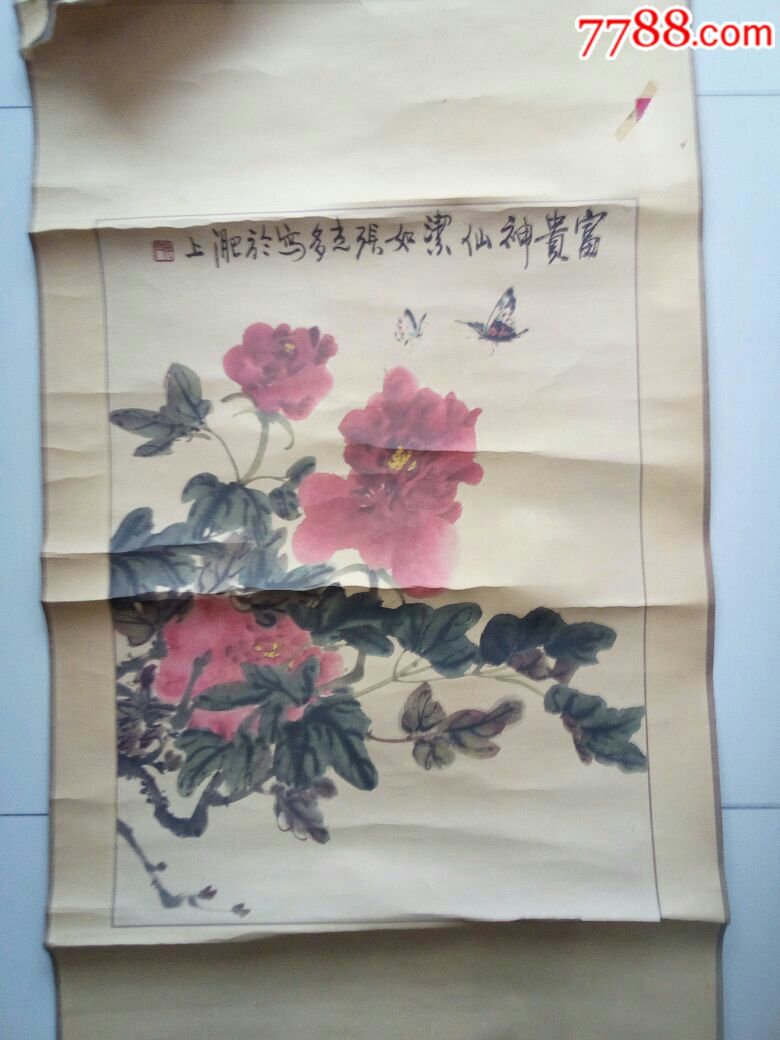 7788.com
富貴神仙潔如張克多寫於淝上